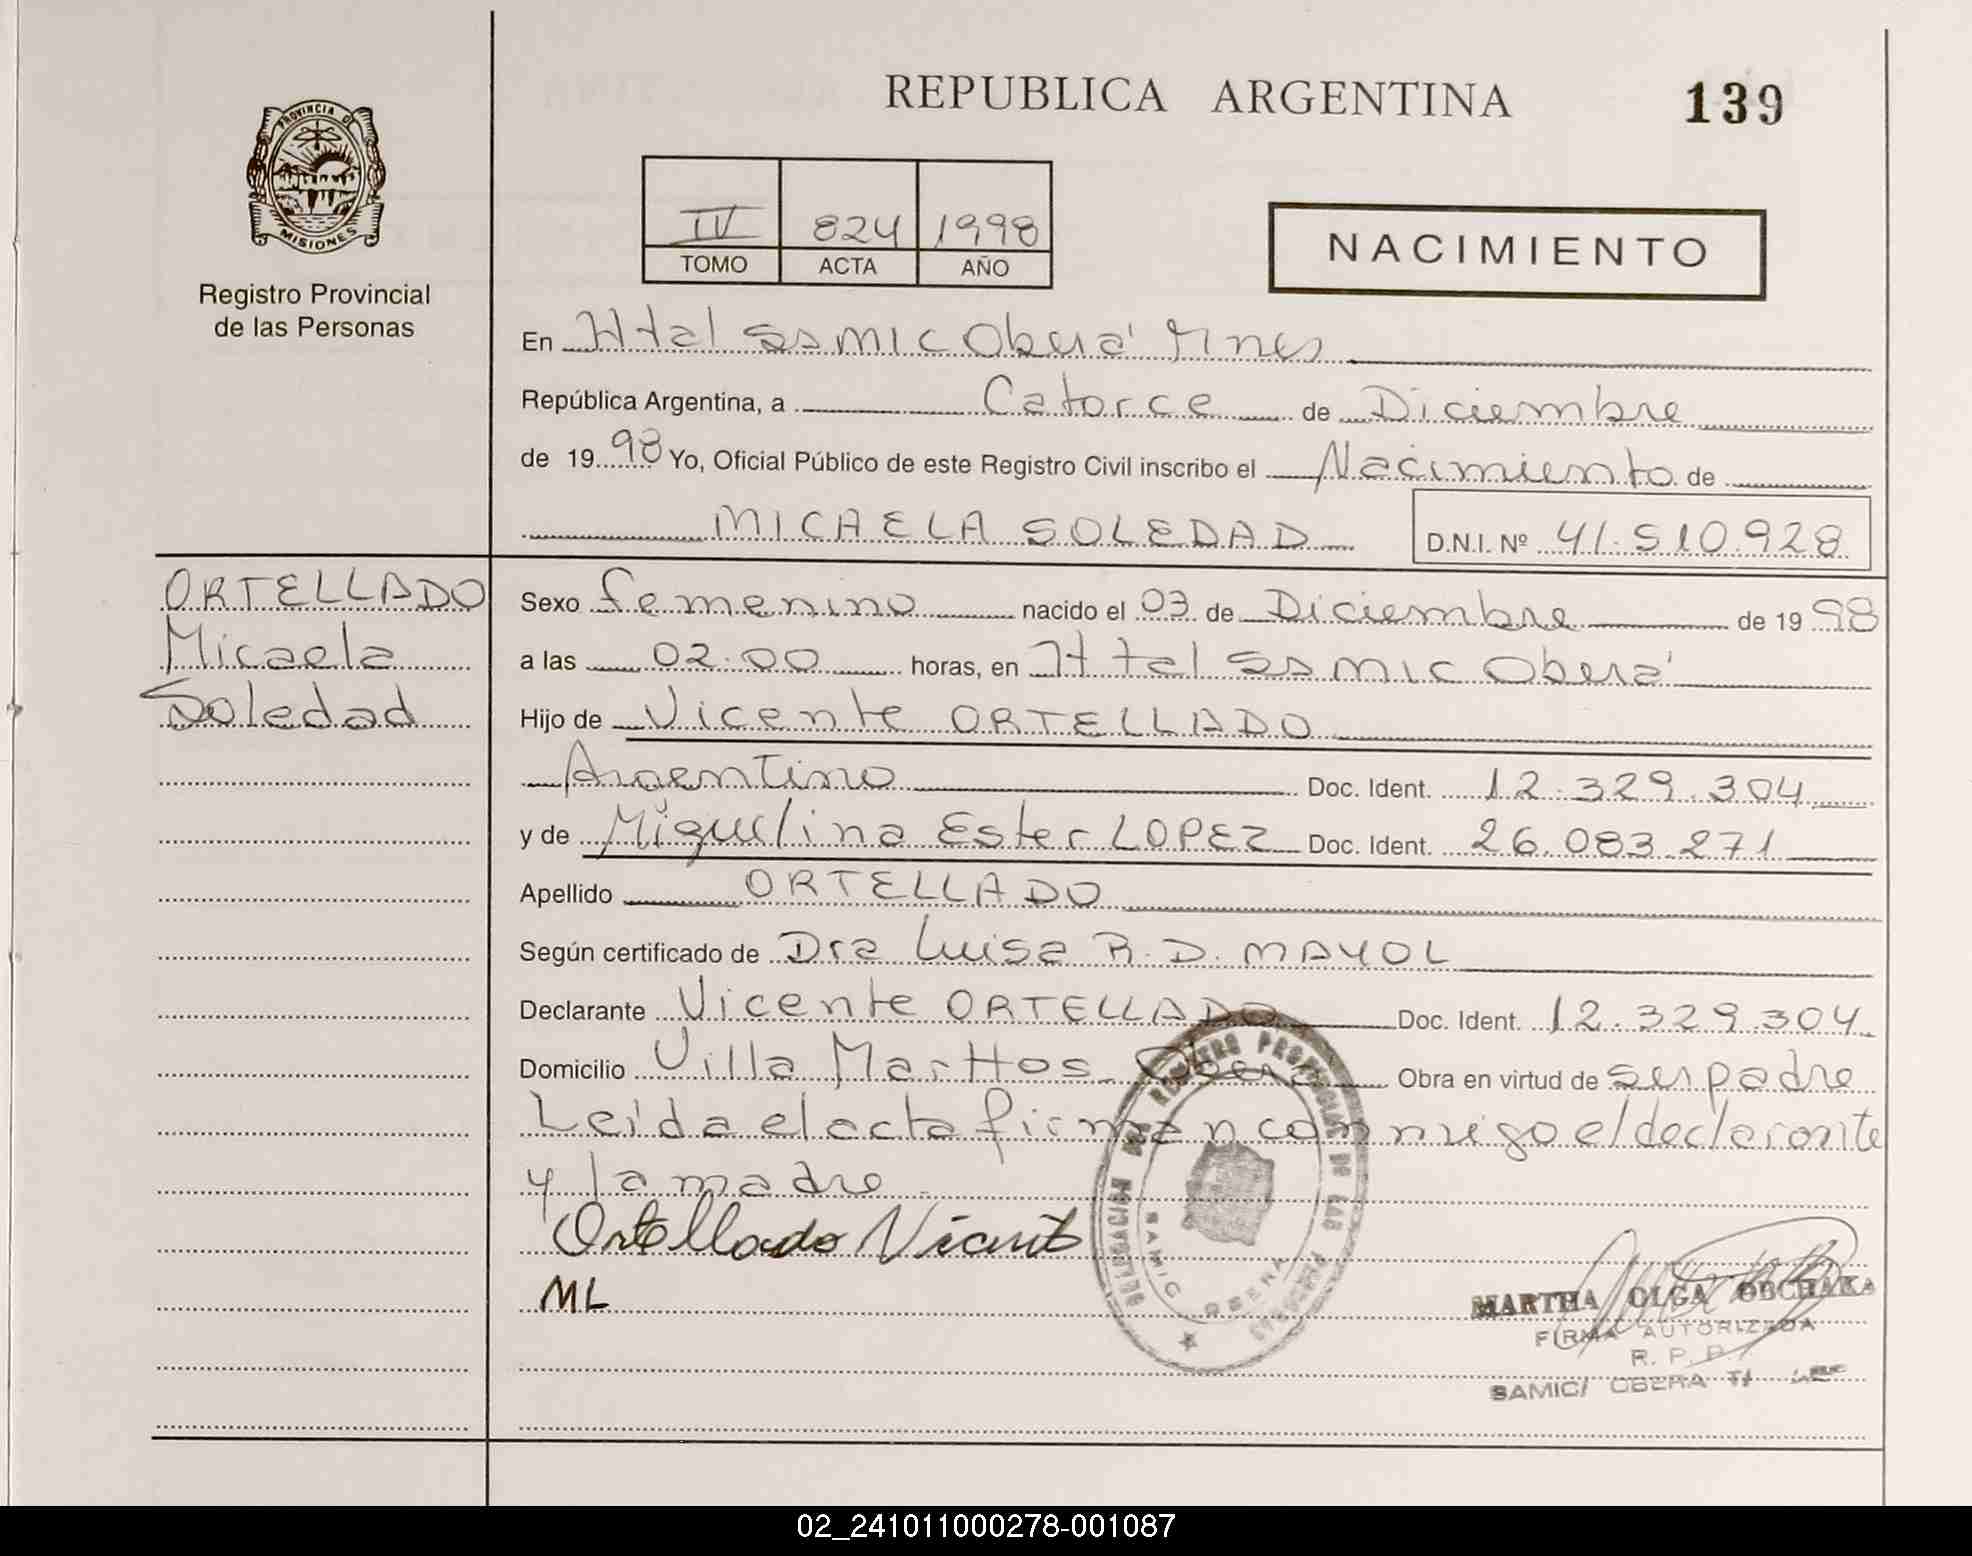 REPUBLICA ARGENTINA
139
PROVINCIA DE
MISIONES
Registro Provincial
de las Personas
IV 824 1998
TOMO ACTA AÑO
NACIMIENTO
En Htal Samic Oberá Mnes
República Argentina, a Catorce de Diciembre
de 1998 Yo, Oficial Público de este Registro Civil inscribo el Nacimiento de
MICAELA SOLEDAD D.N.I. Nº 41.510.928
ORTELLADO
Micaela
Soledad
Sexo femenino nacido el 03 de Diciembre de 1998
a las 02:00 horas, en Htal Samic Oberá
Hijo de Vicente ORTELLADO
Argentino Doc. Ident. 12.329.304
y de Miguelina Ester LOPEZ Doc. Ident. 26.083.271
Apellido ORTELLADO
Según certificado de Dra Luisa R. D. MAYOL
Declarante Vicente ORTELLADO Doc. Ident. 12.329.304
Domicilio Villa Marttos Oberá Obra en virtud de ser padre
Leída el acta firman conmigo el declarante
y la madre.
Ortellado Vicente
ML
DELEGACION DEL REGISTRO PROVINCIAL DE LAS PERSONAS
SAMIC OBERA
MARTHA OLGA OBCHAKA
FIRMA AUTORIZADA
R. P. P.
SAMIC/ OBERA
02_241011000278-001087